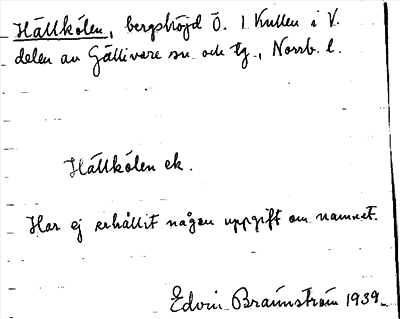 Hällkölen, bergshöjd Ö. l Kullen i V.
delen av Gällivare sn. och tg., Norrb. l.
Hällkölen ek.
Har ej erhållit någon uppgift om namnet.
Edvin Brännström 1939